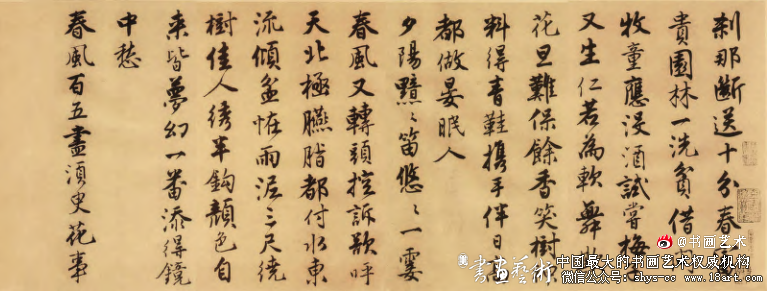 刹那斷送十分春富
貴園林一洗貧借
牧童應沒酒試嘗梅
又生仁若為軟舞欺
花旦難保餘香笑樹
料得青鞋携手伴日
都做晏眠人
夕陽黯〻笛悠〻一霎
春風又轉頭控訴欲呼
天北極臙脂都付水東
流傾盆恠雨泥三尺繞
樹佳人綉半鈎顏色自
來皆夢幻一番添得鏡
中愁
春風百五盡須臾花事
@书画艺术
書畫藝術
中国最大的书画艺术权威机构
微信公众号：shys-cc www.18art.com